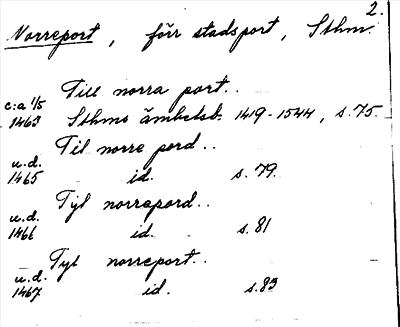 2.
Norreport, förr stadsport, Sthm.
Till norra port..
c:a 1/5 1463 Sthms ämbetsb. 1419-1544, s. 75.
Til norre pord..
u.d. 1465 id. s. 79.
Tyl norrapord..
u.d. 1466 id. s. 81
Tyl norreport..
u.d. 1467 id. s. 83